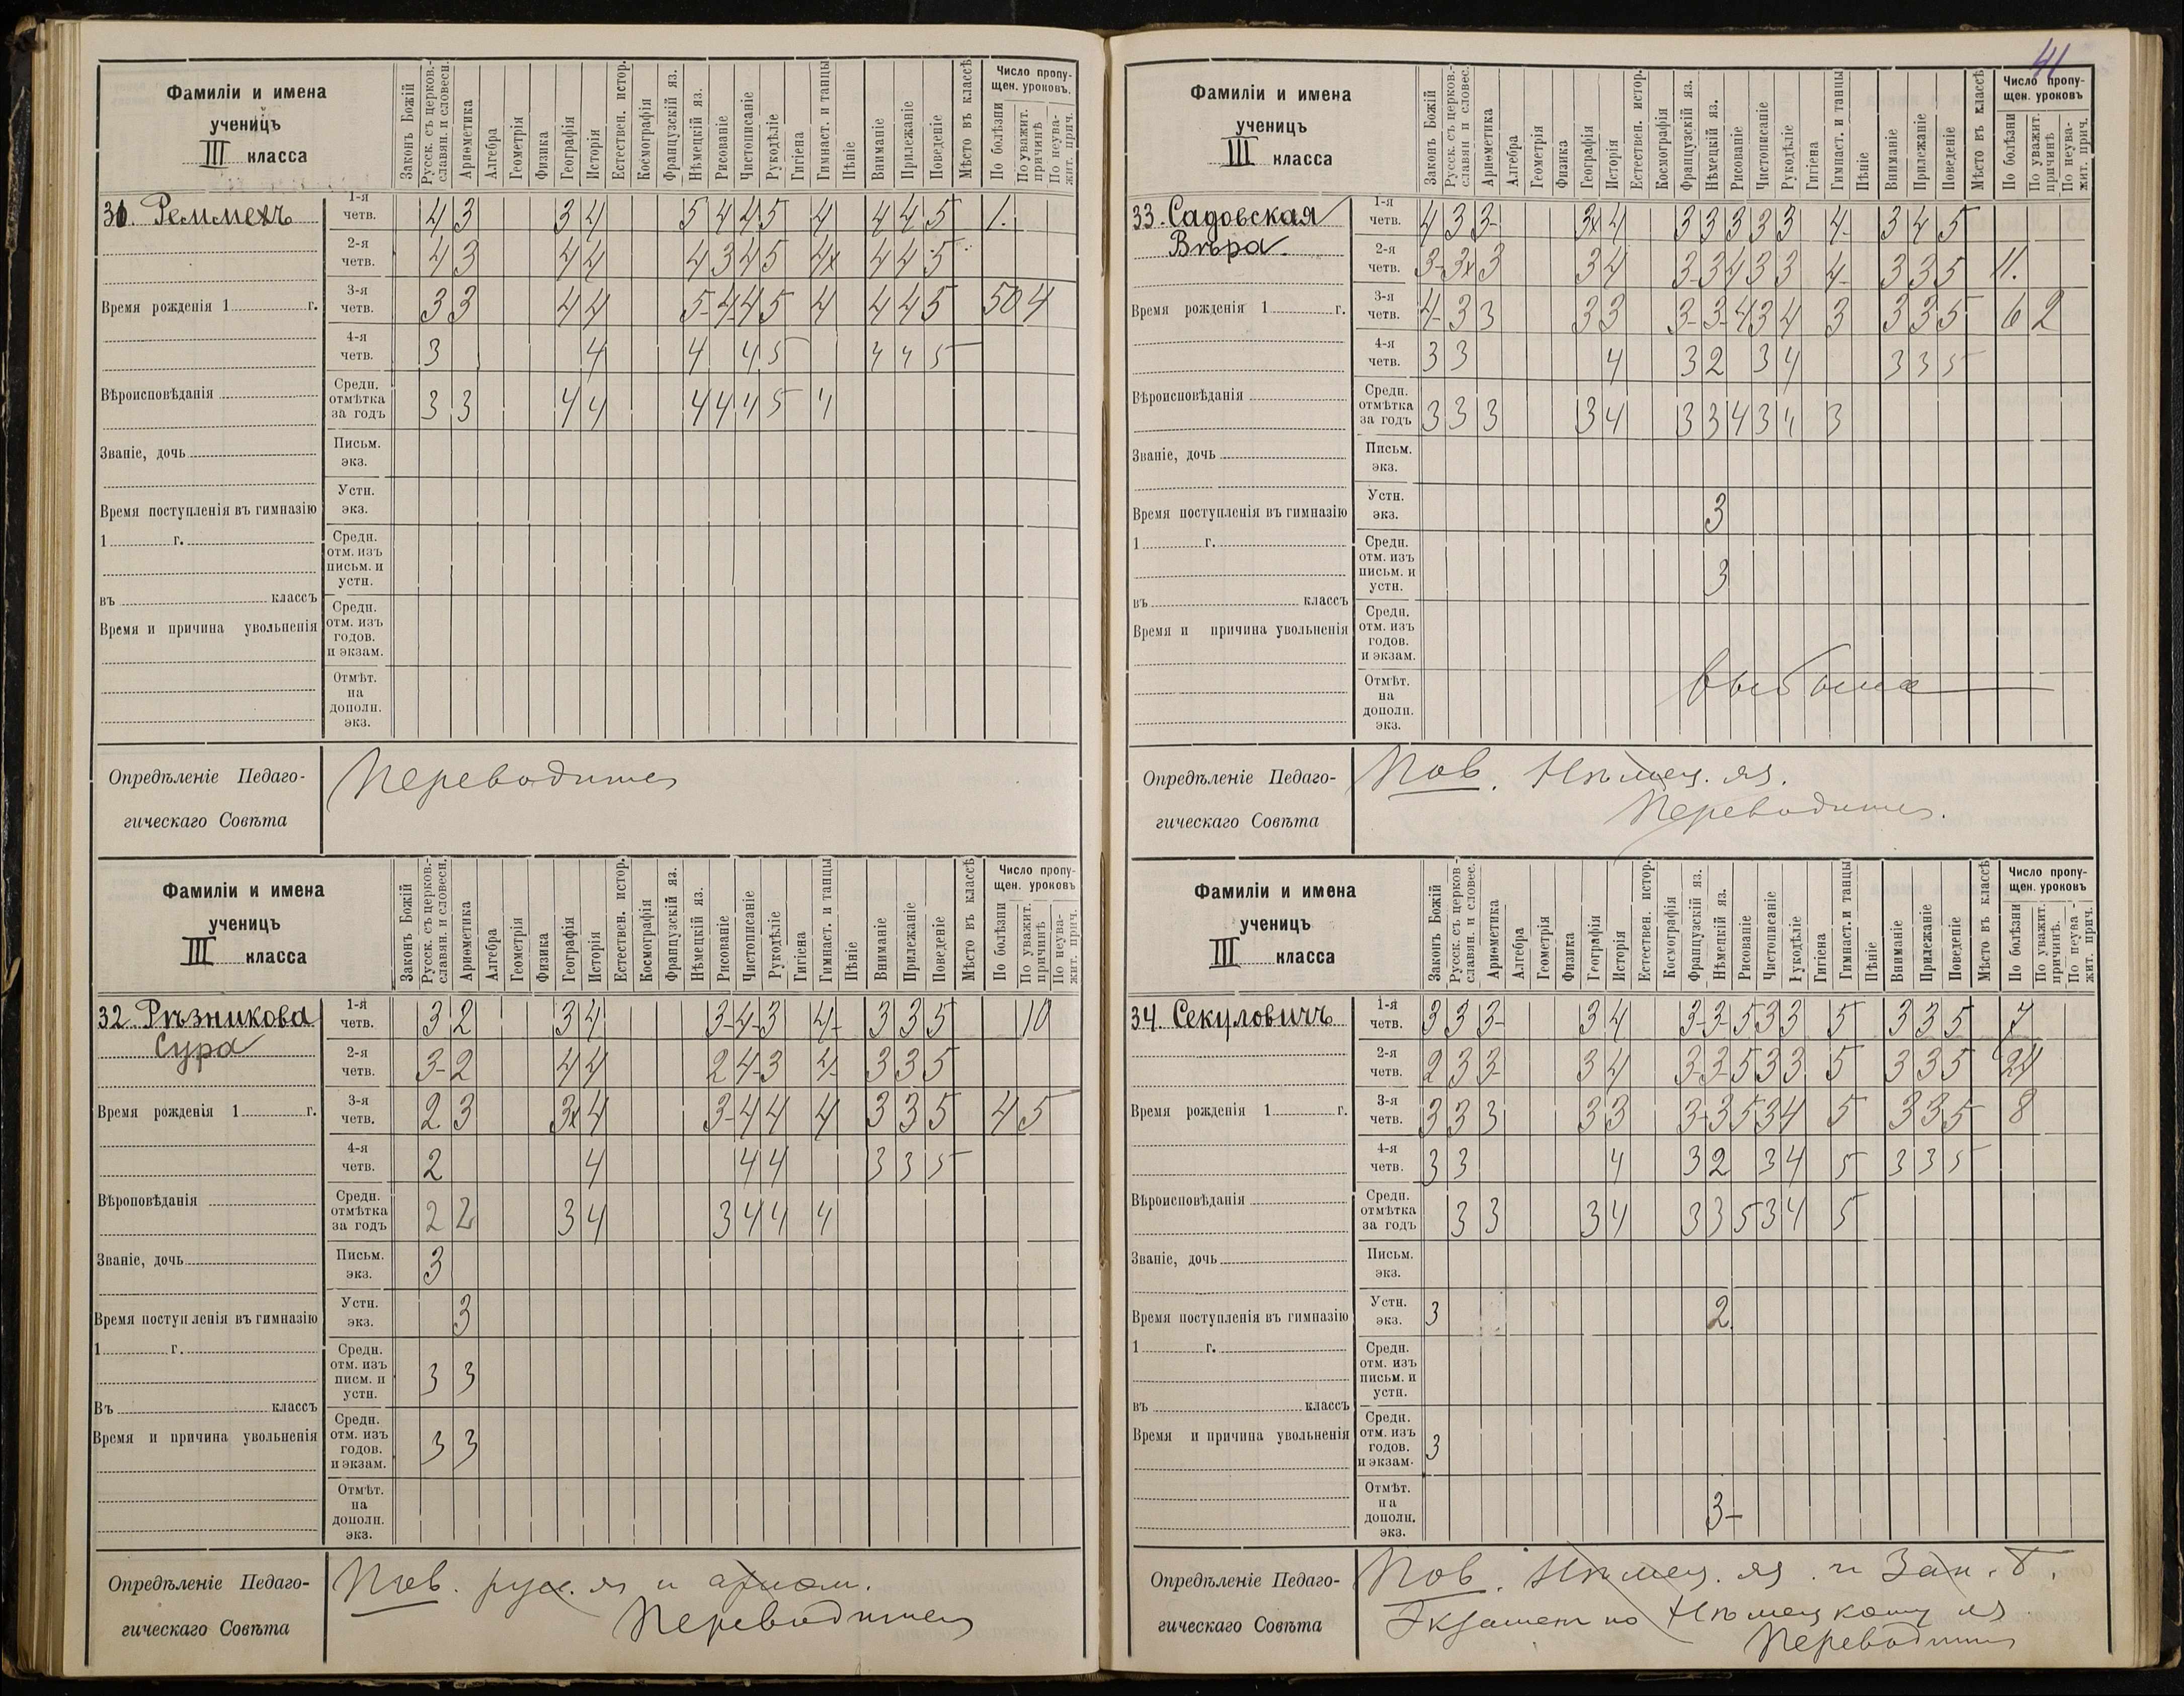 41
Фамиліи и имена
ученицъ
III класса
Законъ Божій
Русск. съ церков.-славян. и словесн.
Ариѳметика
Алгебра
Геометрія
Физика
Географія
Исторія
Естествен. истор.
Космографія
Французскій яз.
Нѣмецкій яз.
Рисованіе
Чистописаніе
Рукодѣліе
Гигіена
Гимнаст. и танцы
Пѣніе
Вниманіе
Прилежаніе
Поведеніе
Мѣсто въ классѣ
Число пропу-
щен. уроковъ.
По болѣзни
По уважит. причинѣ
По неува-жит. прич.
31. Реммехъ
1-я четв. 4 3 3 4 5 4 4 5 4 4 4 5 1.
2-я четв. 4 3 4 4 4 3 4 5 4x 4 4 5
Время рожденія 1 г.
3-я четв. 3 3 4 4 5- 4- 4 5 4 4 4 5 50 4
4-я четв. 3 4 4 4 5 4 4 5
Вѣроисповѣданія
Средн. отмѣтка за годъ 3 3 4 4 4 4 4 5 4
Званіе, дочь
Письм. экз.
Время поступленія въ гимназію
Устн. экз.
1 г.
Средн. отм. изъ письм. и устн.
въ классъ
Время и причина увольненія
Средн. отм. изъ годов. и экзам.
Отмѣт. на дополн. экз.
Опредѣленіе Педаго-
гическаго Совѣта
Переводится
Фамиліи и имена
ученицъ
III класса
Законъ Божій
Русск. съ церков.-славян. и словесн.
Ариѳметика
Алгебра
Геометрія
Физика
Географія
Исторія
Естествен. истор.
Космографія
Французскій яз.
Нѣмецкій яз.
Рисованіе
Чистописаніе
Рукодѣліе
Гигіена
Гимнаст. и танцы
Пѣніе
Вниманіе
Прилежаніе
Поведеніе
Мѣсто въ классѣ
Число пропу-
щен. уроковъ
По болѣзни
По уважит. причинѣ
По неува-жит. прич.
32. Рѣзникова
Сура
1-я четв. 3 2 3 4 3- 4- 3 4- 3 3 5 10
2-я четв. 3- 2 4 4 2 4- 3 4- 3 3 5
Время рожденія 1 г.
3-я четв. 2 3 3x 4 3- 4 4 4 3 3 5 4 5
4-я четв. 2 4 4 4 3 3 5
Вѣроповѣданія
Средн. отмѣтка за годъ 2 2 3 4 3 4 4 4
Званіе, дочь
Письм. экз. 3
Время поступленія въ гимназію
Устн. экз. 3
1 г.
Средн. отм. изъ писм. и устн. 3 3
Въ классъ
Время и причина увольненія
Средн. отм. изъ годов. и экзам. 3 3
Отмѣт. на дополн. экз.
Опредѣленіе Педаго-
гическаго Совѣта
Пов. русс. яз и ариѳм.
Переводится
Фамиліи и имена
ученицъ
III класса
Законъ Божій
Русск. съ церков.-славян и словес.
Ариѳметика
Алгебра
Геометрія
Физика
Географія
Исторія
Естествен. истор.
Космографія
Французскій яз.
Нѣмецкій яз.
Рисованіе
Чистописаніе
Рукодѣліе
Гигіена
Гимнаст. и танцы
Пѣніе
Вниманіе
Прилежаніе
Поведеніе
Мѣсто въ классѣ
Число пропу-
щен. уроковъ
По болѣзни
По уважит. причинѣ
По неува-жит. прич.
33. Садовская
Вѣра.
1-я четв. 4 3 3- 3x 4 3 3 3 3 3 4- 3 4 5
2-я четв. 3- 3x 3 3 4 3- 3 4 3 3 4- 3 3 5 11.
Время рожденія 1 г.
3-я четв. 4- 3 3 3 3 3- 3- 4 3 4 3 3 3 5 6 2
4-я четв. 3 3 4 3 2 3 4 3 3 5
Вѣроисповѣданія
Средн. отмѣтка за годъ 3 3 3 3 4 3 3 4 3 4 3
Званіе, дочь
Письм. экз.
Время поступленія въ гимназію
Устн. экз. 3
1 г.
Средн. отм. изъ письм. и устн. 3
въ классъ
Время и причина увольненія
Средн. отм. изъ годов. и экзам.
Отмѣт. на дополн. экз.
выбыла
Опредѣленіе Педаго-
гическаго Совѣта
Пов. Нѣмец. яз.
Переводится.
Фамиліи и имена
ученицъ
III класса
Законъ Божій
Русск. съ церков-славян. и словес.
Ариѳметика
Алгебра
Геометрія
Физика
Географія
Исторія
Естествен. истор.
Космографія
Французскій яз.
Нѣмецкій яз.
Рисованіе
Чистописаніе
Рукодѣліе
Гигіена
Гимнаст. и танцы
Пѣніе
Вниманіе
Прилежаніе
Поведеніе
Мѣсто въ классѣ
Число пропу-
щен. уроковъ
По болѣзни
По уважит. причинѣ.
По неува-жит. прич.
34. Секуловичъ
1-я четв. 3 3 3- 3 4 3- 3- 5 3 3 5 3 3 5 7
2-я четв. 2 3 3- 3 4 3- 3- 5 3 3 5 3 3 5 24
Время рожденія 1 г.
3-я четв. 3 3 3 3 3 3- 3 5 3 4 5 3 3 5 8
4-я четв. 3 3 4 3 2 3 4 5 3 3 5
Вѣроисповѣданія
Средн. отмѣтка за годъ 3 3 3 4 3 3 5 3 4 5
Званіе, дочь
Письм. экз.
Время поступленія въ гимназію
Устн. экз. 3 2.
1 г.
Средн. отм. изъ письм. и устн.
въ классъ
Время и причина увольненія
Средн. отм. изъ годов. и экзам. 3
Отмѣт. на дополн. экз. 3-
Опредѣленіе Педаго-
гическаго Совѣта
Пов. Нѣмец. яз. и Зак. б.
Экзамен по Нѣмецкому яз
Переводится